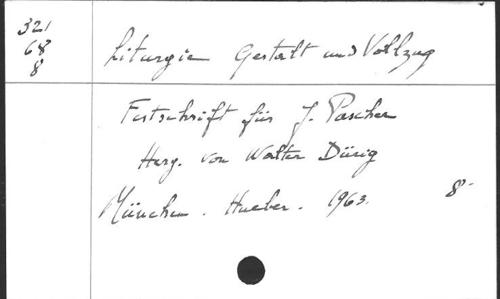 321
68
8
Liturgie Gestalt und Vollzug
Festschrift für J. Pascher
Herg. von Walter Dürig
München. Hueber. 1963. 8°